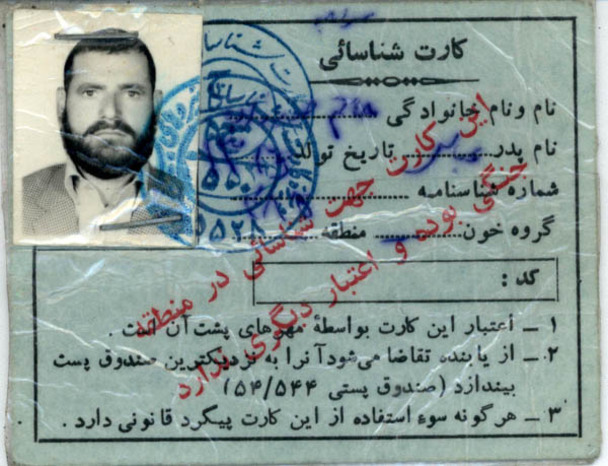 کارت شناسائی
نام و نام خانوادگی
نام پدر تاریخ تولد
شماره شناسنامه
گروه خون منطقه
کد :
۱ ـ اعتبار این کارت بواسطهٔ مهرهای پشت آن است .
۲ ـ از یابنده تقاضا می‌شود آنرا به نزدیکترین صندوق پست
بیندازد (صندوق پستی ۵۴/۵۴۴)
۳ ـ هرگونه سوء استفاده از این کارت پیگرد قانونی دارد .
این کارت جهت شناسائی در منطقه
جنگی بوده و اعتبار دیگری ندارد